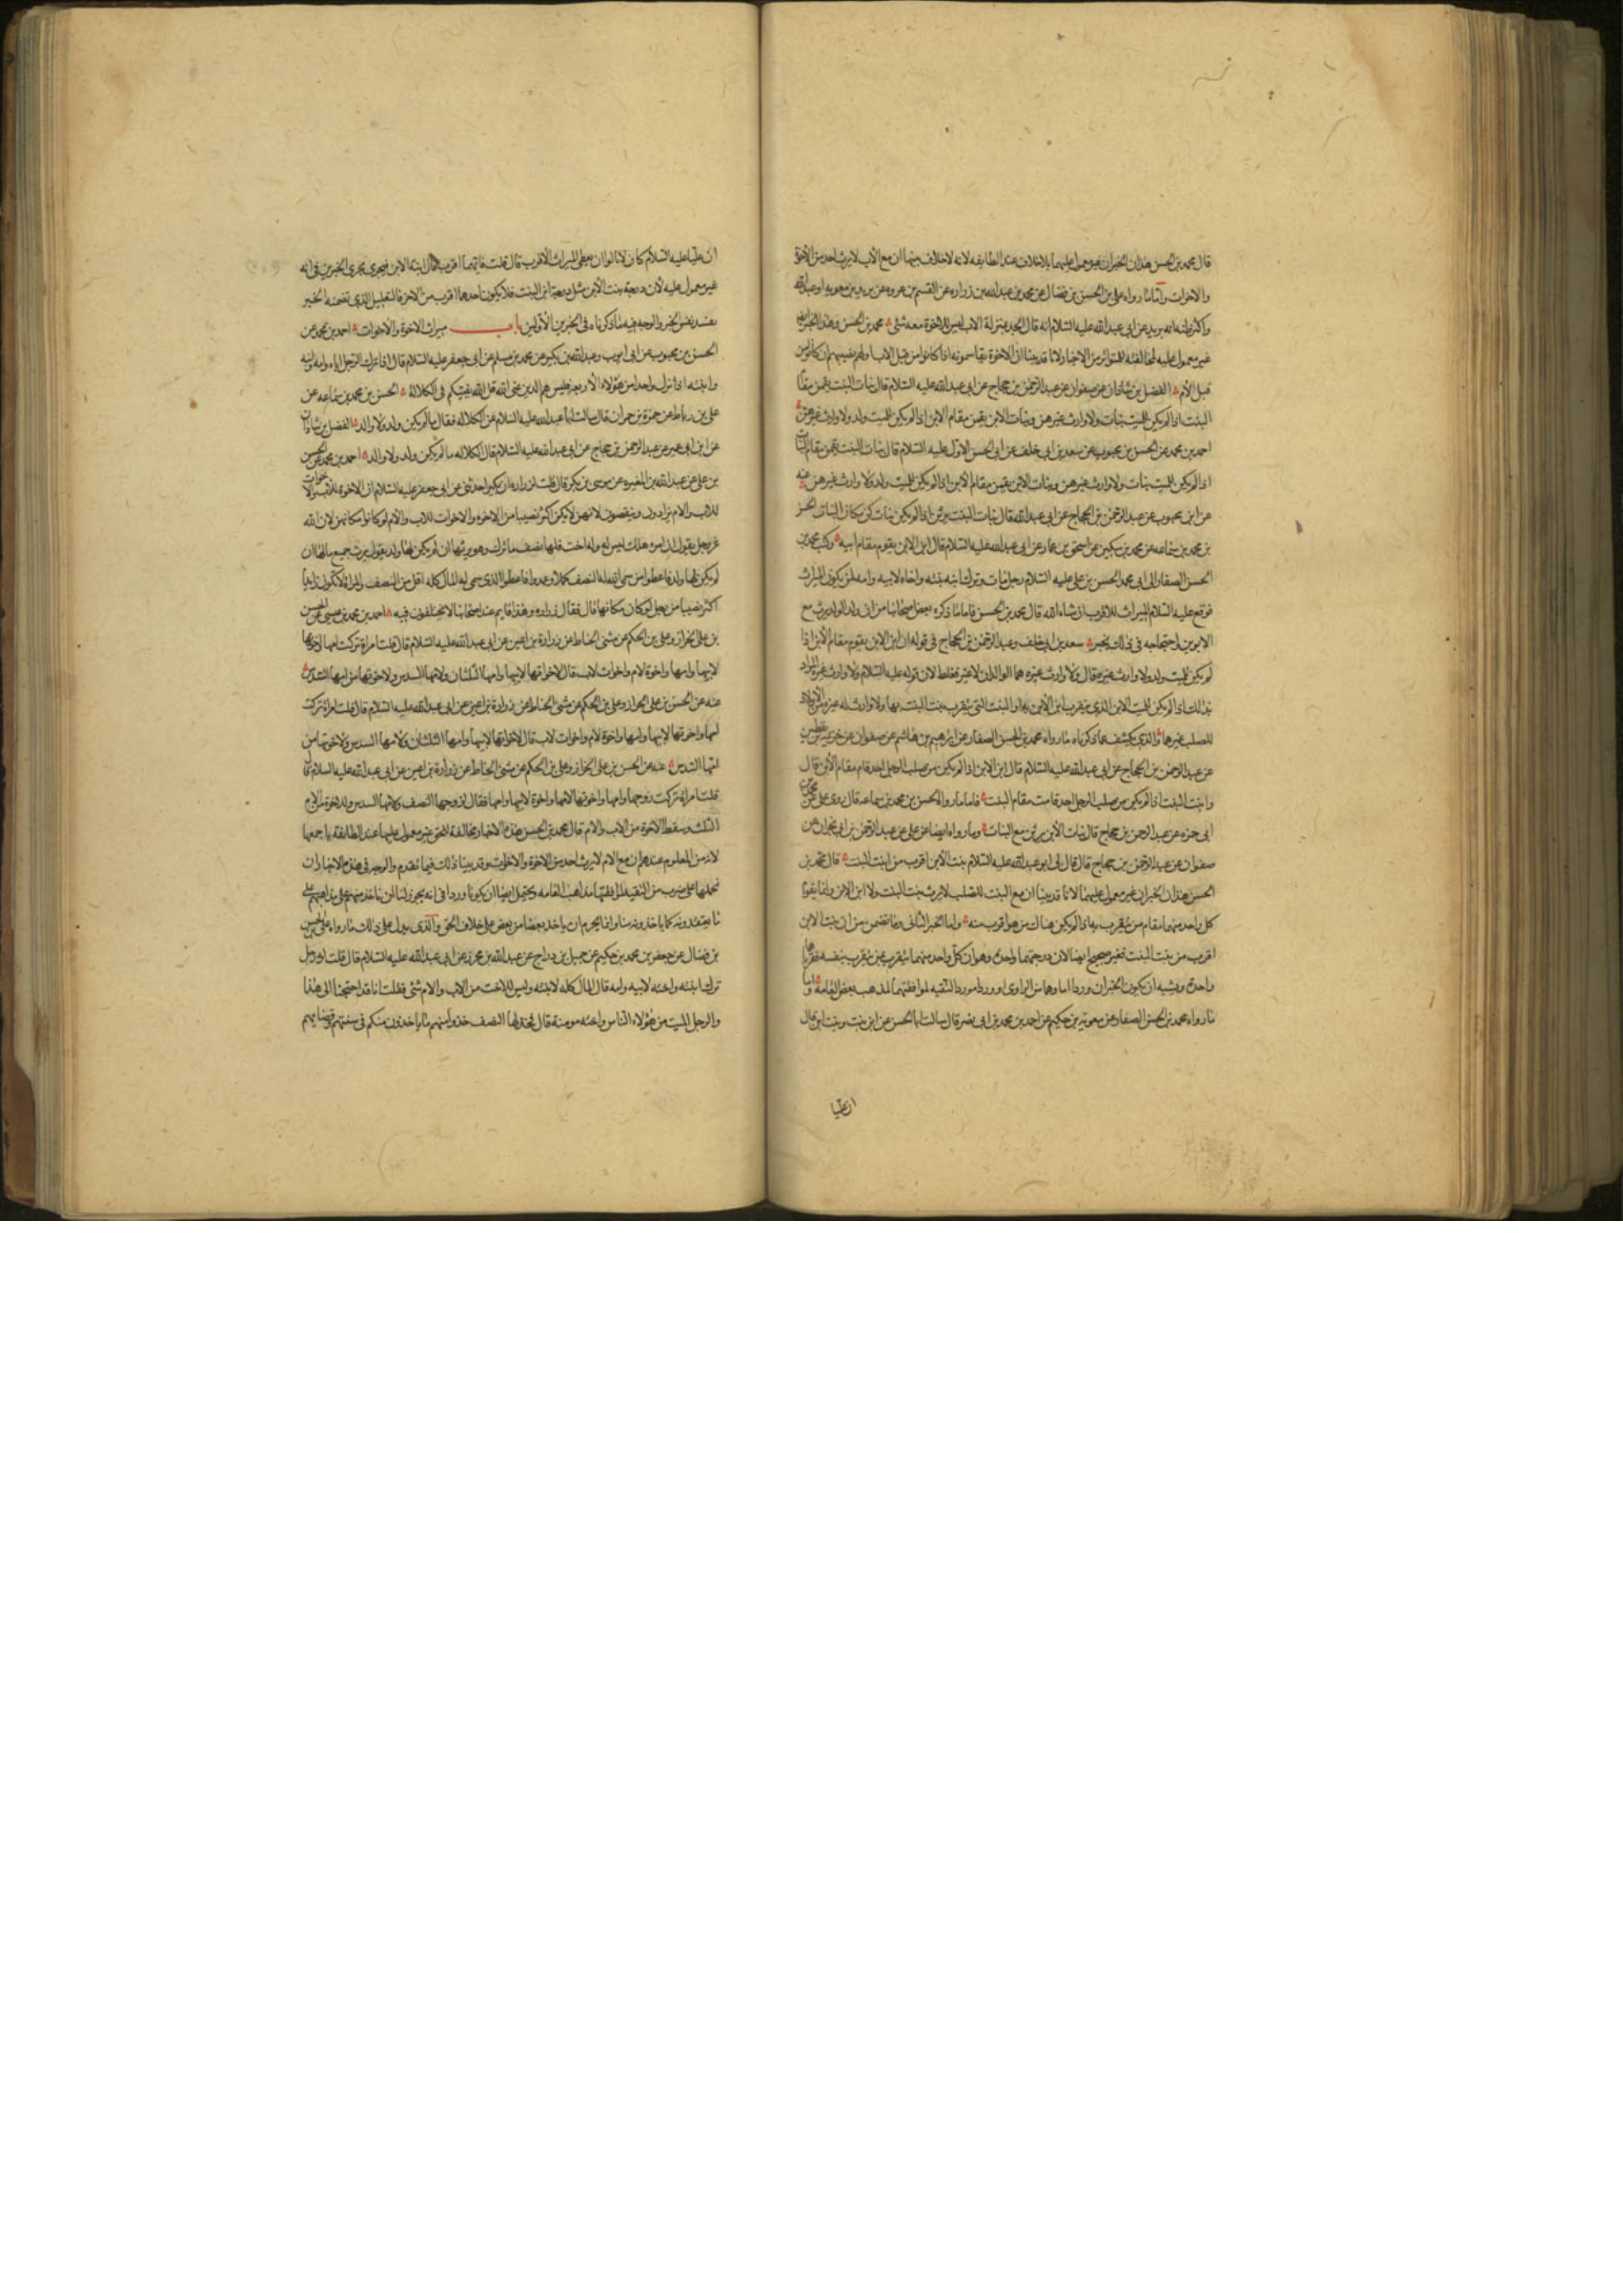 قال محمد بن الحسن هذان الخبران غير معمول عليهما بلا خلاف عند الطايفه لانه لا خلاف بينها ان مع الاب لا يرث احد من الاخوة
والاخوات واما ما رواه علي بن الحسن بن فضال عن محمد بن عبد الله بن زراره عن القسم بن عروه عن بريد بن معويه او عبد الله
واكثر ظنه انه بريد عن ابي عبد الله عليه السلام انه قال الجد بمنزلة الاب ليس للاخوة معه شئ محمد بن الحسن وهذا الخبر ايضا
غير معمول عليه لمخالفته المتواتر من الاخبار ولانا قد بينا ان الاخوة يقاسمونه اذا كانوا من قبل الاب ولهم نصيبهم ان كانوا من
قبل الأم الفضل بن شاذان عن صفوان عن عبد الرحمن بن حجاج عن ابي عبد الله عليه السلام قال بنات البنت يقمن مقام
البنت اذا لم يكن للميت بنات ولا وارث غيرهن وبنات الابن يقمن مقام الابن اذا لم يكن للميت ولد ولا وارث غيرهن
احمد بن محمد عن الحسن بن محبوب عن سعد بن ابي خلف عن ابي الحسن الاول عليه السلام قال بنات البنت يقمن مقام البنات
اذا لم يكن للميت بنات ولا وارث غيرهن وبنات الابن يقمن مقام الأبن اذا لم يكن للميت ولد ولا وارث غيرهن عنه
عن ابن محبوب عن عبد الرحمن بن الحجاج عن ابي عبد الله قال بنات البنت يرثن اذا لم يكن بنات كن مكان البنات الحسن
بن محمد بن سماعه عن محمد بن سكين عن اسحق بن عمار عن ابي عبد الله عليه السلام قال ابن الابن يقوم مقام ابيه وكتب محمد بن
الحسن الصفار الى ابي محمد الحسن بن علي عليه السلام رجل مات وترك ابنة بنته واخاه لابيه وامه لمن يكون الميراث
فوقع عليه السلام الميراث للاقرب ان شاء الله قال محمد بن الحسن فاما ما ذكره بعض اصحابنا من ان ولد الولد يرث مع
الابوين واحتجاجه في ذلك بخبر سعد بن ابي خلف وعبد الرحمن بن الحجاج في قوله ان ابن الابن يقوم مقام الأبن اذا
لم يكن للميت ولد ولا وارث غيره قال ولا وارث غيره هما الوالدان لا غير فغلط لان قوله عليه السلام ولا وارث غيره المراد
بذلك اذا لم يكن للميت الابن الذي يتقرب ابن الأبن به او البنت التي يتقرب بنت البنت بها ولا وارث له غيره من الاولاد
للصلب غيرها والذي يكشف عما ذكرناه ما رواه محمد بن الحسن الصفار عن ابراهيم بن هاشم عن صفوان عن خزيمة بن يقطين
عن عبد الرحمن بن الحجاج عن ابي عبد الله عليه السلام قال ابن الابن اذا لم يكن من صلب الرجل احد قام مقام الأبن قال
وابنت البنت اذا لم يكن من صلب الرجل احد قامت مقام البنت فاما ما رواه الحسن بن محمد بن سماعه قال روى علي عن محمد بن
ابي حمزه عن عبد الرحمن بن حجاج قال بنات الأبن يرثن مع البنات وما رواه ايضا عن علي عن عبد الرحمن بن ابي نجران عن
صفوان عن عبد الرحمن بن حجاج قال قال لي ابو عبد الله عليه السلام بنت الأبن اقرب من ابنت البنت قال محمد بن
الحسن هذان الخبران غير معمول عليهما لانا قد بينا ان مع البنت للصلب لا يرث بنت البنت ولا ابن الابن وانما يقوم
كل واحد منهما مقام من يتقرب به اذا لم يكن هناك من هو اقرب منه واما الخبر الثاني وما تضمن من ان بنت الابن
اقرب من بنت البنت فغير صحيح ايضا لان درجتهما واحدة وهو ان كل واحد منهما يتقرب بمن يتقرب بنفسه فقربهما
واحدة ويشبه ان يكون الخبران وردا اما وهما من الراوي او وردا مورد التقيه لموافقتهما لمذهب بعض العامة واما
ما رواه محمد بن الحسن الصفار عن معويه بن حكيم عن احمد بن محمد بن ابي نصر قال سالت ابا الحسن عن ابن بنت وبنت ابن قال
ان عليا
ان عليا عليه السلام كان لا يالوا ان يعطي الميراث الأقرب قال قلت فايهما اقرب قال ابنة الابن فيجري مجرى الخبرين في انه
غير معمول عليه لأن درجة بنت الأبن مثل درجة ابن البنت فلا يكون احدهما اقرب من الاخر فالتعليل الذي تضمنه الخبر
يفسد نفس الخبر والوجه فيه ما ذكرناه في الخبرين الأولين باب ميراث الاخوة والاخوات احمد بن محمد عن
الحسن بن محبوب عن ابي ايوب وعبد الله بن بكير عن محمد بن مسلم عن ابي جعفر عليه السلام قال اذا ترك الرجل اباه وامه وابنه
وابنته اذا ترك واحدا من هؤلاء الأربعة فليس هم الذين عنى الله قل الله يفتيكم في الكلالة الحسن بن محمد بن سماعه عن
علي بن رباط عن حمزة بن حمران قال سالت ابا عبد الله عليه السلام عن الكلاله فقال ما لم يكن ولد ولا والد الفضل بن شاذان
عن ابن ابي عمير عن عبد الرحمن بن حجاج عن ابي عبد الله عليه السلام قال الكلاله ما لم يكن ولد ولا والد احمد بن محمد عن الحسن
بن علي عن عبد الله بن المغيره عن موسى بن بكر قال قلت لزراره ان بكيرا حدثني عن ابي جعفر عليه السلام ان الاخوة للأب والاخوات
للاب والام يزادون وينقصون لانهن لا يكن اكثر نصيبا من الاخوه والاخوات للاب والأم لو كانوا مكانهن لان الله
عز وجل يقول ان امرء هلك ليس له ولد وله اخت فلها نصف ما ترك وهو يرثها ان لم يكن لها ولد يقول يرث جميع مالها ان
لم يكن لها ولد فاعطوا من سمى الله له النصف كملا وعمدوا فاعطوا الذي سمى له المال كله اقل من النصف والمراة لا تكون ابدا
اكثر نصيبا من رجل لو كان مكانها قال فقال زراره وهذا قايم عند اصحابنا لا يختلفون فيه احمد بن محمد بن عيسى عن الحسن
بن علي الخزاز وعلي بن الحكم عن مثنى الحناط عن زرارة بن اعين عن ابي عبد الله عليه السلام قال قلت امراة تركت امها واخواتها
لابيها وامها واخوة لام واخوات لاب قال لاخواتها لابيها وامها الثلثان ولامها السدس ولاخوتها من امها السدس
عنه عن الحسن بن علي الخزاز وعلي بن الحكم عن مثنى الحناط عن زرارة بن اعين عن ابي عبد الله عليه السلام قال قلت امراة تركت
امها واخواتها لابيها وامها واخوة لأم واخوات لاب قال لاخواتها لابيها وامها الثلثان ولامها السدس ولاخوتها من
امها السدس عنه عن الحسن بن علي الخزاز وعلي بن الحكم عن مثنى الحناط عن زرارة بن اعين عن ابي عبد الله عليه السلام قال
قلت امراة تركت زوجها وامها واخوتها لامها واخوة لابيها وامها فقال لزوجها النصف ولامها السدس وللاخوة من الام
الثلث وسقط الاخوة من الاب والام قال محمد بن الحسن هذه الاخبار مخالفة للحق غير معمول عليها عند الطائفة باجمعها
لان من المعلوم عندهم ان مع الام لا يرث احد من الاخوة والاخوات وقد بينا ذلك فيما تقدم والوجه في هذه الاخبار ان
نحملها على ضرب من التقيه لموافقتها مذاهب العامه ويحتمل ايضا ان يكونا وردا في انه يجوز لنا ان ناخذ منهم على مذاهبهم على
ما يعتقدونه كما ياخذونه منا وانما يحرم ان ياخذ بعضا من بعض على خلاف الحق والذي يدل على ذلك ما رواه علي بن الحسن
بن فضال عن جعفر بن محمد بن حكيم عن جميل بن دراج عن عبد الله بن محرز عن ابي عبد الله عليه السلام قال قلت له رجل
ترك ابنته واخته لابيه وامه قال المال كله لابنته وليس للاخت من الاب والام شئ فقلت انا قد احتجنا الى هذا
والرجل الميت من هؤلاء الناس واخته مومنة قال فخذ لها النصف خذوا منهم ما ياخذون منكم في سنتهم وقضاياهم